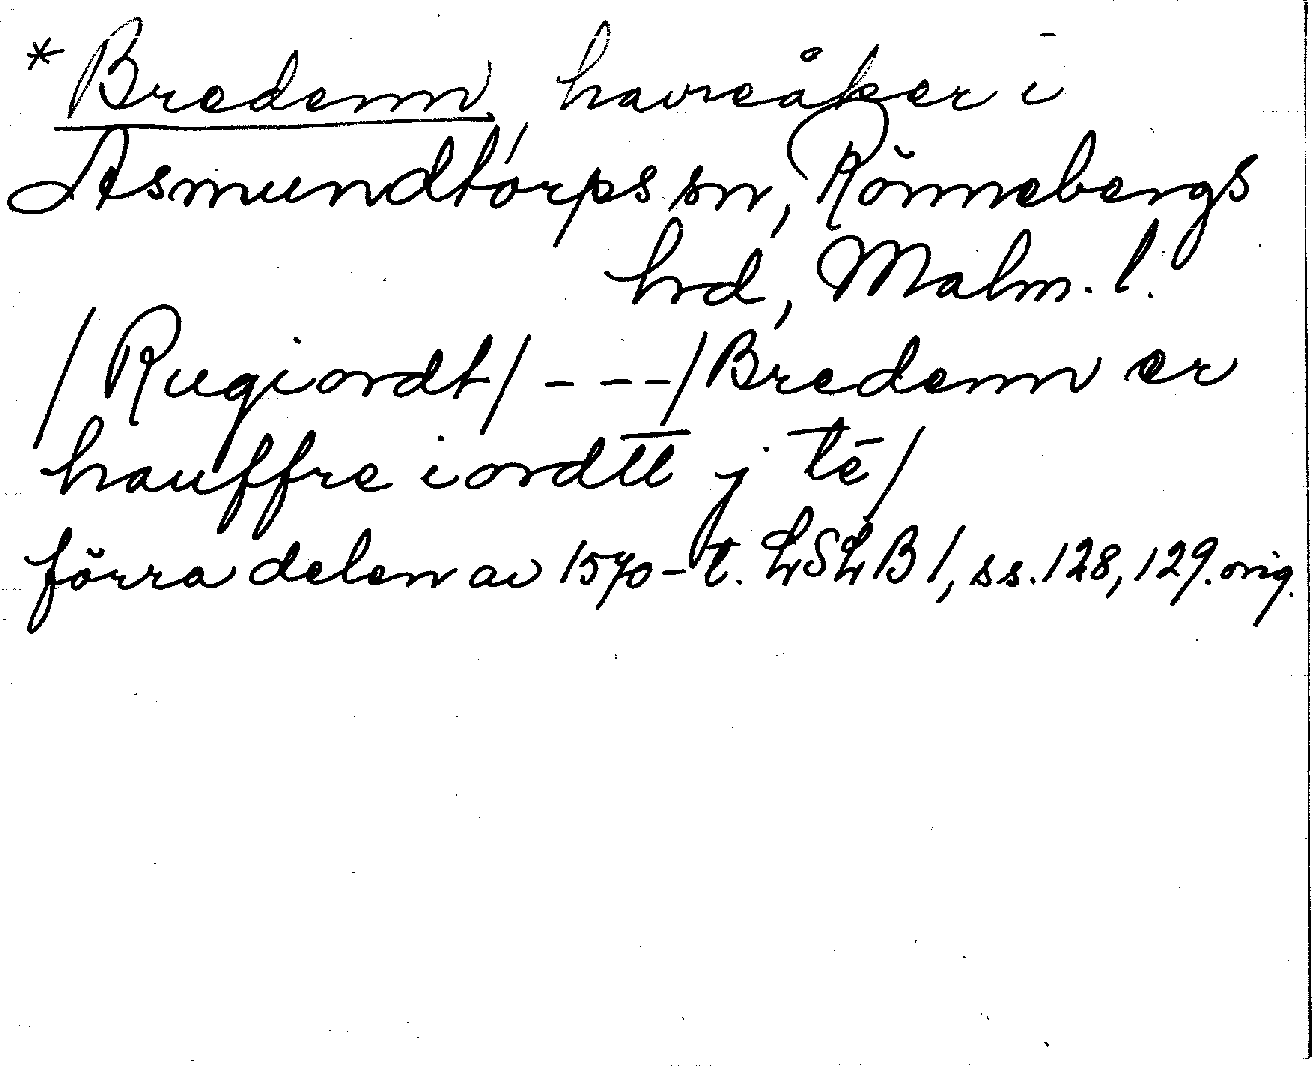 *Bredenn, havreåker i
Asmundtorps sn, Rönnebergs
hd, Malm. l.
/Rugiordt/ - - -/Bredenn er
hauffre iordtt j tē/
förra delen av 1570-t. LSLB 1, ss. 128, 129. orig.